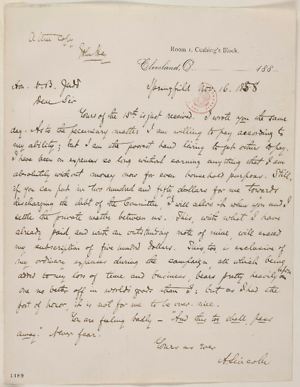 A true copy
Room 1. Cushing's Block.
Cleveland, O. 188
Springfield Nov. 16. 1858
Hon. N. B. Judd
Dear Sir
Yours of the 15th is just received. I wrote you the same
day. As to the pecuniary matter, I am willing to pay according to
my ability; but I am the poorest hand living to get others to pay.
I have been on expenses so long without earning anything that I am
absolutely without money now for even household purposes. Still,
if you can put in two hundred and fifty dollars for me towards
discharging the debt of the Committee, I will allow it when you and I
settle the private matter between us. This, with what I have
already paid and with an outstanding note of mine, will exceed
my subscription of five hundred dollars. This too is exclusive of
my ordinary expenses during the campaign, all which being
added to my loss of time and business, bears pretty heavily upon
one no better off in worlds goods than I; but as I had the
post of honor, it is not for me to be over-nice.
You are feeling badly - "And this too shall pass
away" Never fear.
Yours as ever
A. Lincoln
1489